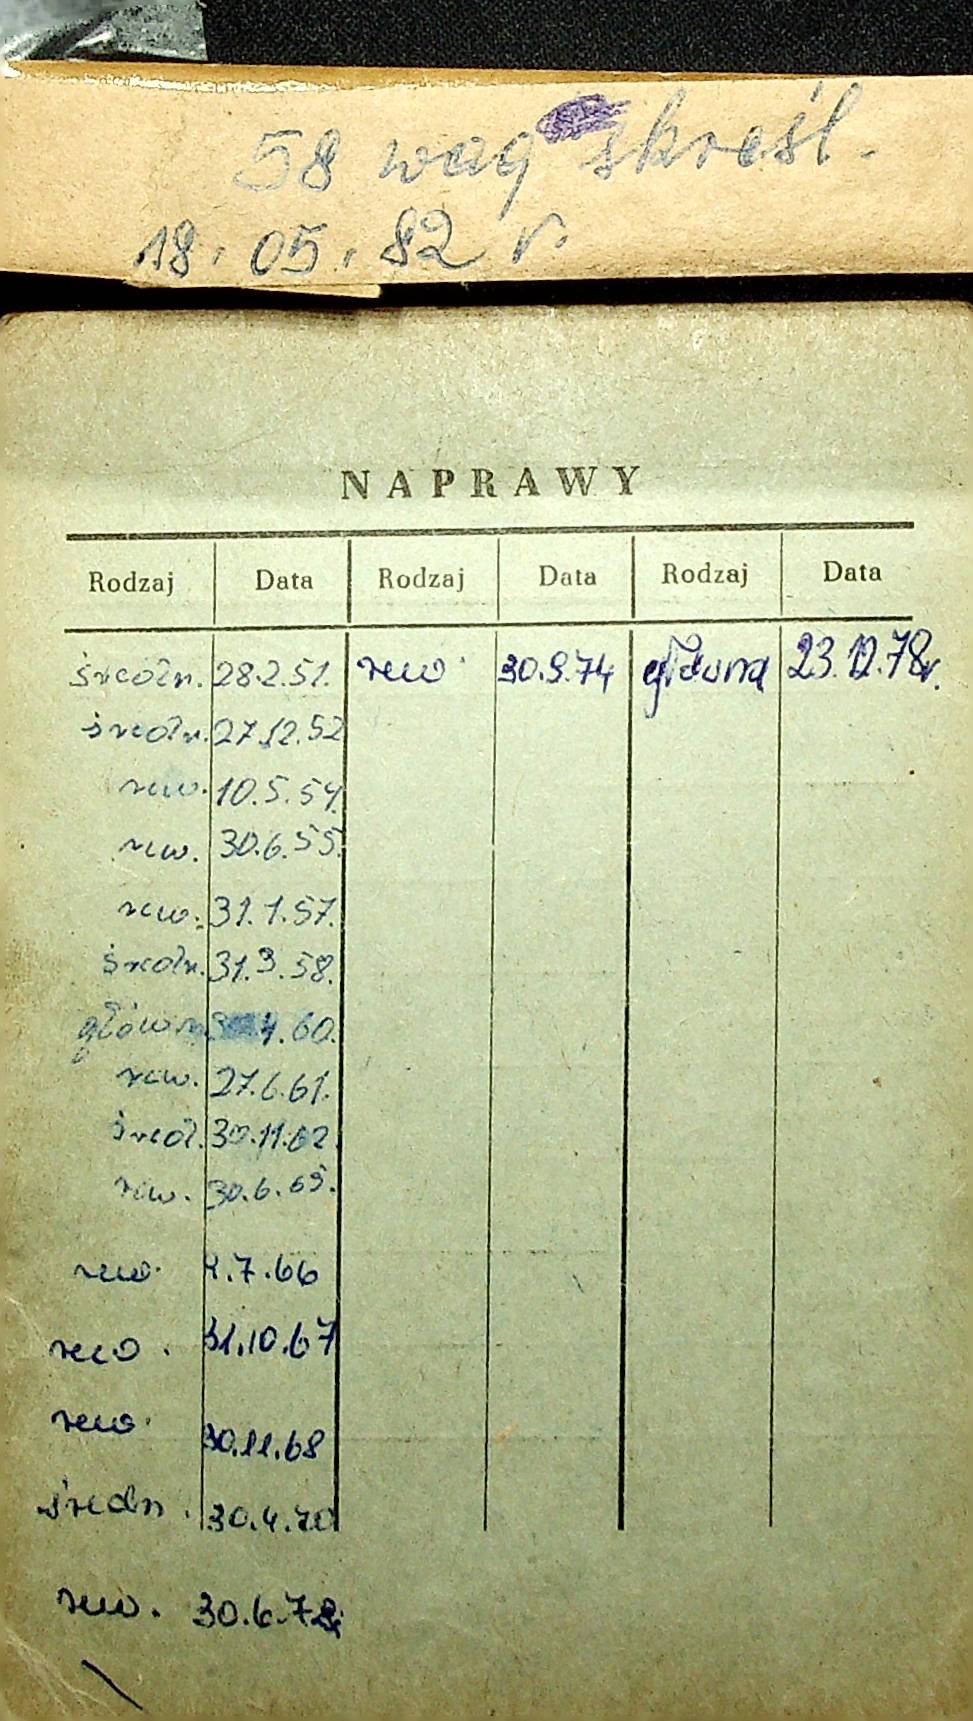 58 wag skreśl.
18. 05. 82 r.
NAPRAWY
Rodzaj Data Rodzaj Data Rodzaj Data
średn. 28.2.51. rew. 30.9.74 główna 23.12.78r.
średn. 27.12.52
rew. 10.5.54.
rew. 30.6.55.
rew. 31.1.57.
średn. 31.3.58.
główn. 4.60.
rew. 27.6.61.
śred. 30.11.62.
rew. 30.6.65.
rew. 7.66
rew. 31.10.67
rew. 30.11.68
średn. 30.4.70
rew. 30.6.72